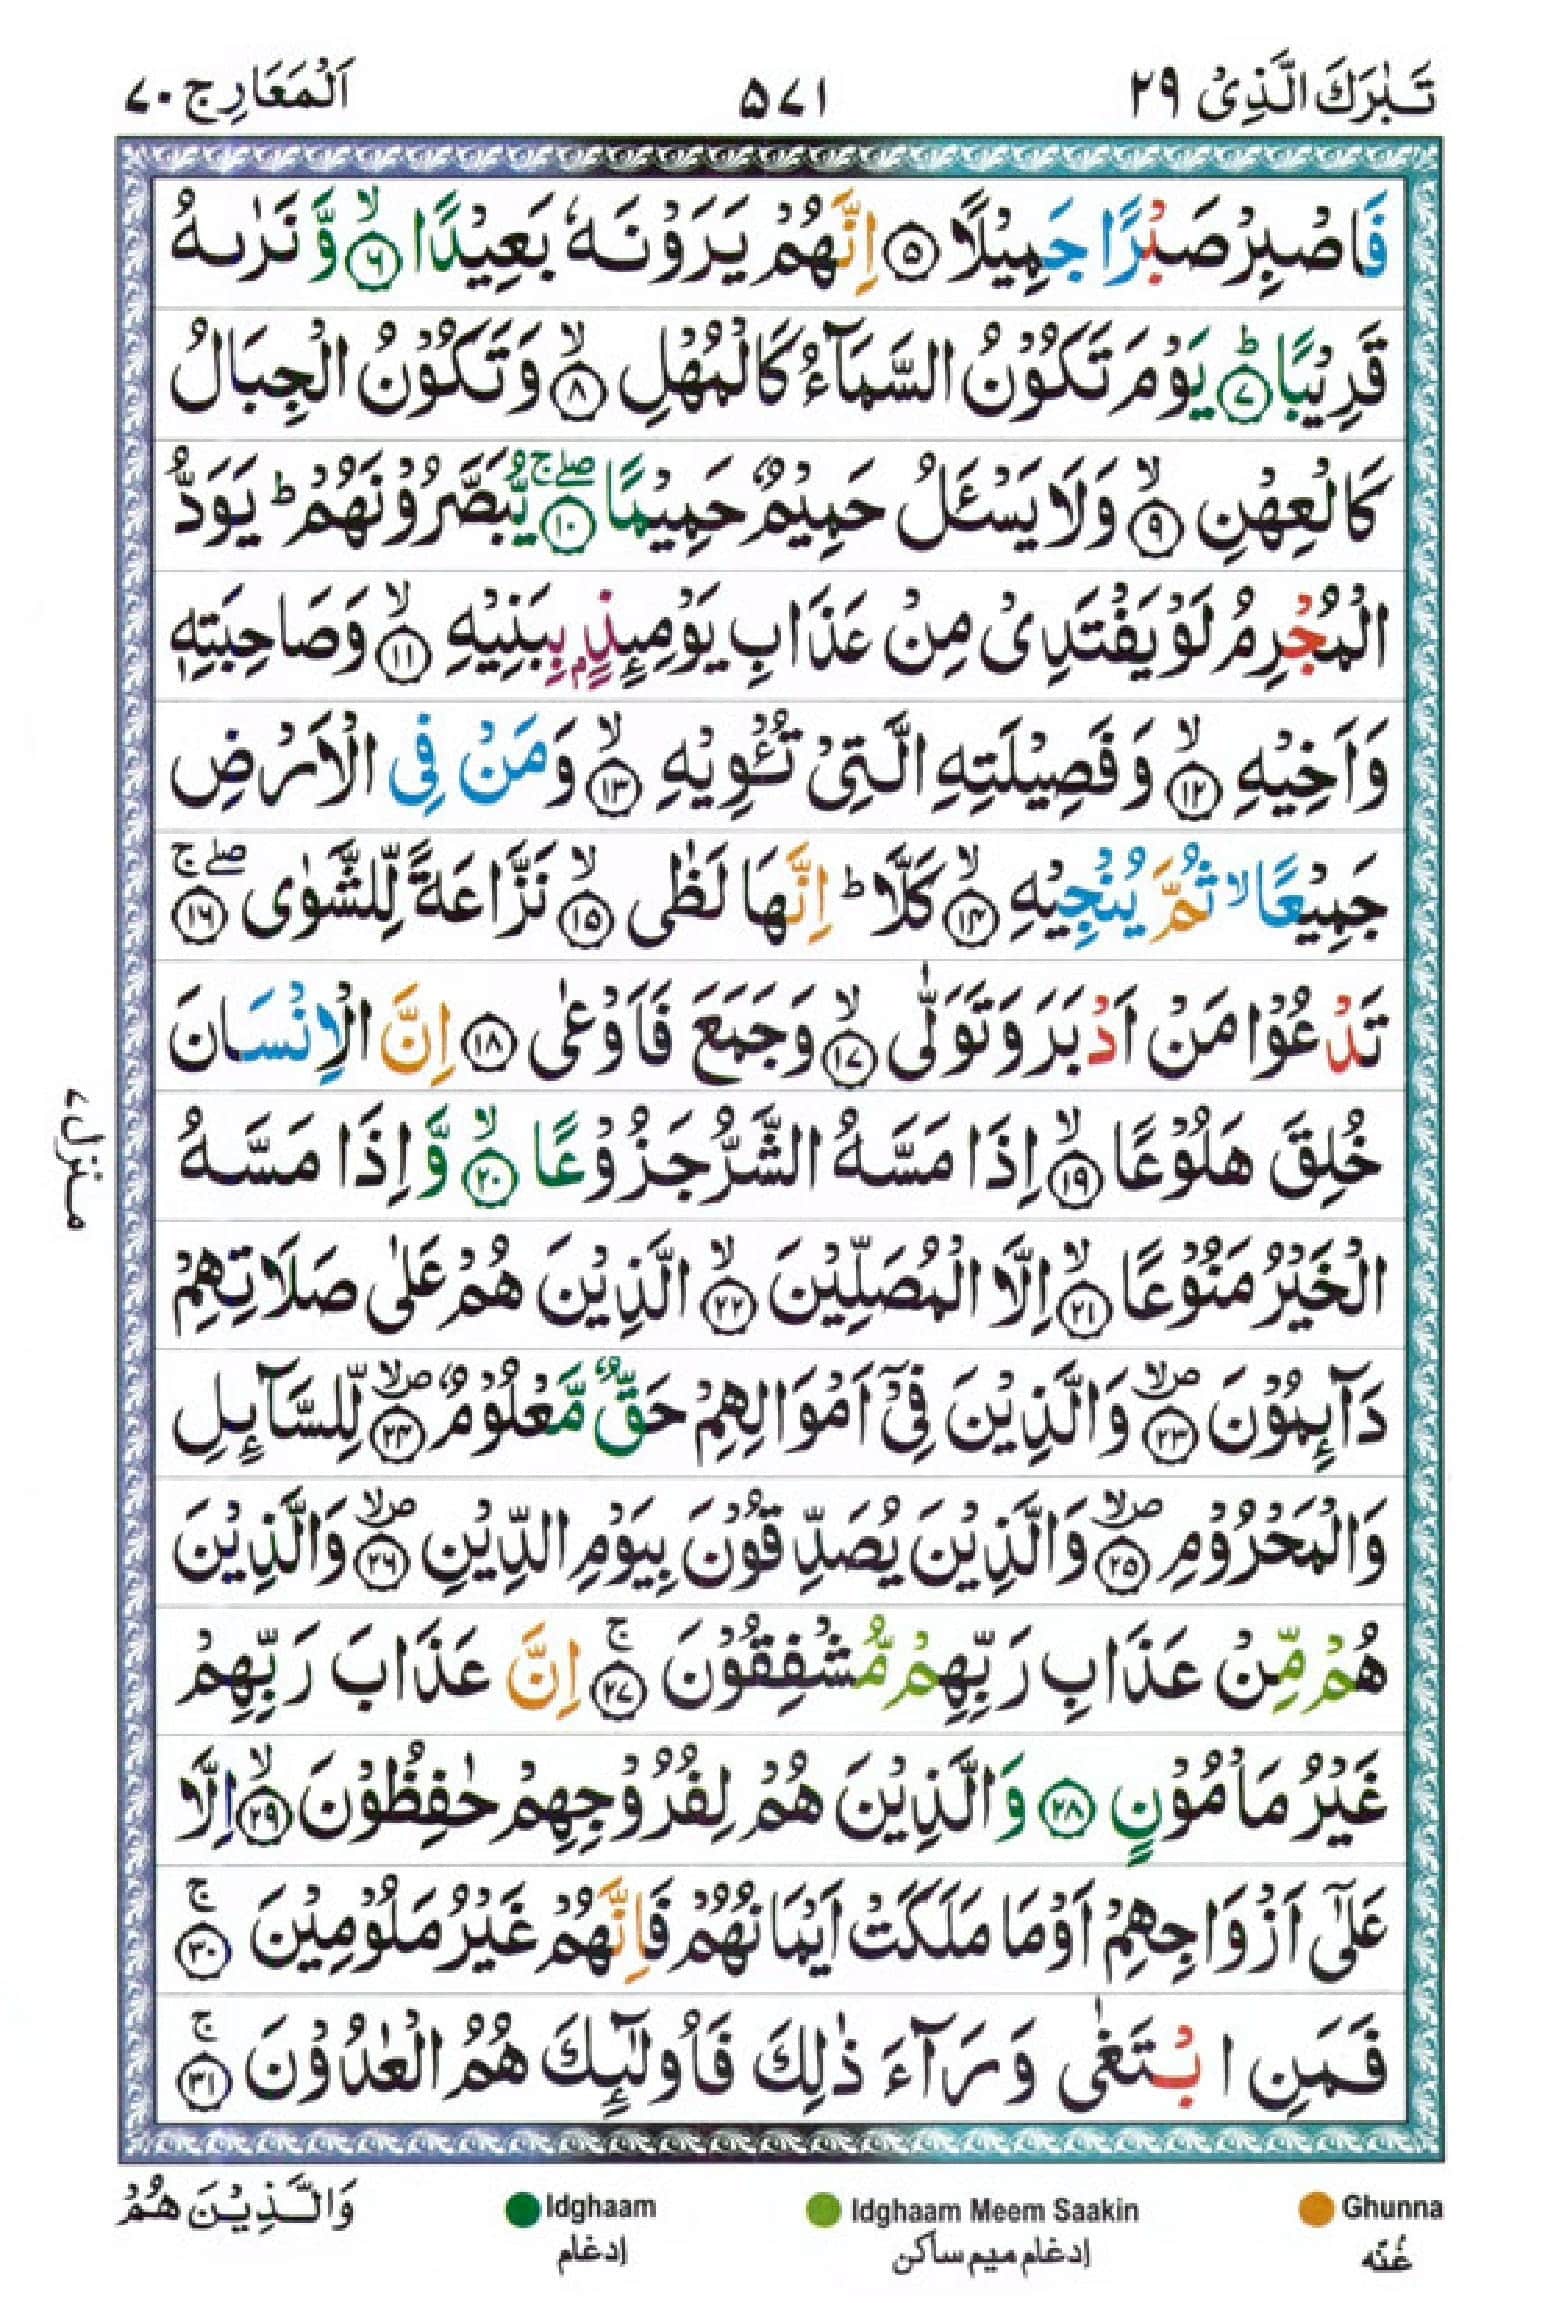 تَبٰرَكَ الَّذِىْ ٢٩
٥٧١
اَلْمَعَارِج ٧٠
فَاصْبِرْ صَبْرًا جَمِيْلًا ۝٥ اِنَّهُمْ يَرَوْنَهٗ بَعِيْدًا ۙ۝٦ وَّنَرٰىهُ
قَرِيْبًا ؕ۝٧ يَوْمَ تَكُوْنُ السَّمَآءُ كَالْمُهْلِ ۙ۝٨ وَتَكُوْنُ الْجِبَالُ
كَالْعِهْنِ ۙ۝٩ وَلَا يَسْـَٔلُ حَمِيْمٌ حَمِيْمًا ۚۖ۝١٠ يُّبَصَّرُوْنَهُمْ ؕ يَوَدُّ
الْمُجْرِمُ لَوْ يَفْتَدِىْ مِنْ عَذَابِ يَوْمِئِذٍۭ بِبَنِيْهِ ۙ۝١١ وَصَاحِبَتِهٖ
وَاَخِيْهِ ۙ۝١٢ وَفَصِيْلَتِهِ الَّتِىْ تُـْٔوِيْهِ ۙ۝١٣ وَمَنْ فِى الْاَرْضِ
جَمِيْعًا ۙ ثُمَّ يُنْجِيْهِ ۙ۝١٤ كَلَّا ؕ اِنَّهَا لَظٰى ۙ۝١٥ نَزَّاعَةً لِّلشَّوٰى ۚۖ۝١٦
تَدْعُوْا مَنْ اَدْبَرَ وَتَوَلّٰى ۙ۝١٧ وَجَمَعَ فَاَوْعٰى ۝١٨ اِنَّ الْاِنْسَانَ
خُلِقَ هَلُوْعًا ۙ۝١٩ اِذَا مَسَّهُ الشَّرُّ جَزُوْعًا ۙ۝٢٠ وَّاِذَا مَسَّهُ
الْخَيْرُ مَنُوْعًا ۙ۝٢١ اِلَّا الْمُصَلِّيْنَ ۙ۝٢٢ الَّذِيْنَ هُمْ عَلٰى صَلَاتِهِمْ
دَآئِمُوْنَ ۪ۙ۝٢٣ وَالَّذِيْنَ فِىْۤ اَمْوَالِهِمْ حَقٌّ مَّعْلُوْمٌ ۪ۙ۝٢٤ لِّلسَّآئِلِ
وَالْمَحْرُوْمِ ۪ۙ۝٢٥ وَالَّذِيْنَ يُصَدِّقُوْنَ بِيَوْمِ الدِّيْنِ ۪ۙ۝٢٦ وَالَّذِيْنَ
هُمْ مِّنْ عَذَابِ رَبِّهِمْ مُّشْفِقُوْنَ ۚ۝٢٧ اِنَّ عَذَابَ رَبِّهِمْ
غَيْرُ مَاْمُوْنٍ ۝٢٨ وَالَّذِيْنَ هُمْ لِفُرُوْجِهِمْ حٰفِظُوْنَ ۙ۝٢٩ اِلَّا
عَلٰٓى اَزْوَاجِهِمْ اَوْمَا مَلَكَتْ اَيْمَانُهُمْ فَاِنَّهُمْ غَيْرُ مَلُوْمِيْنَ ۚ۝٣٠
فَمَنِ ابْتَغٰى وَرَآءَ ذٰلِكَ فَاُولٰٓئِكَ هُمُ الْعٰدُوْنَ ۚ۝٣١
منزل ٧
وَالَّذِيْنَ هُمْ
Idghaam
إدغام
Idghaam Meem Saakin
إدغام ميم ساكن
Ghunna
غُنّه